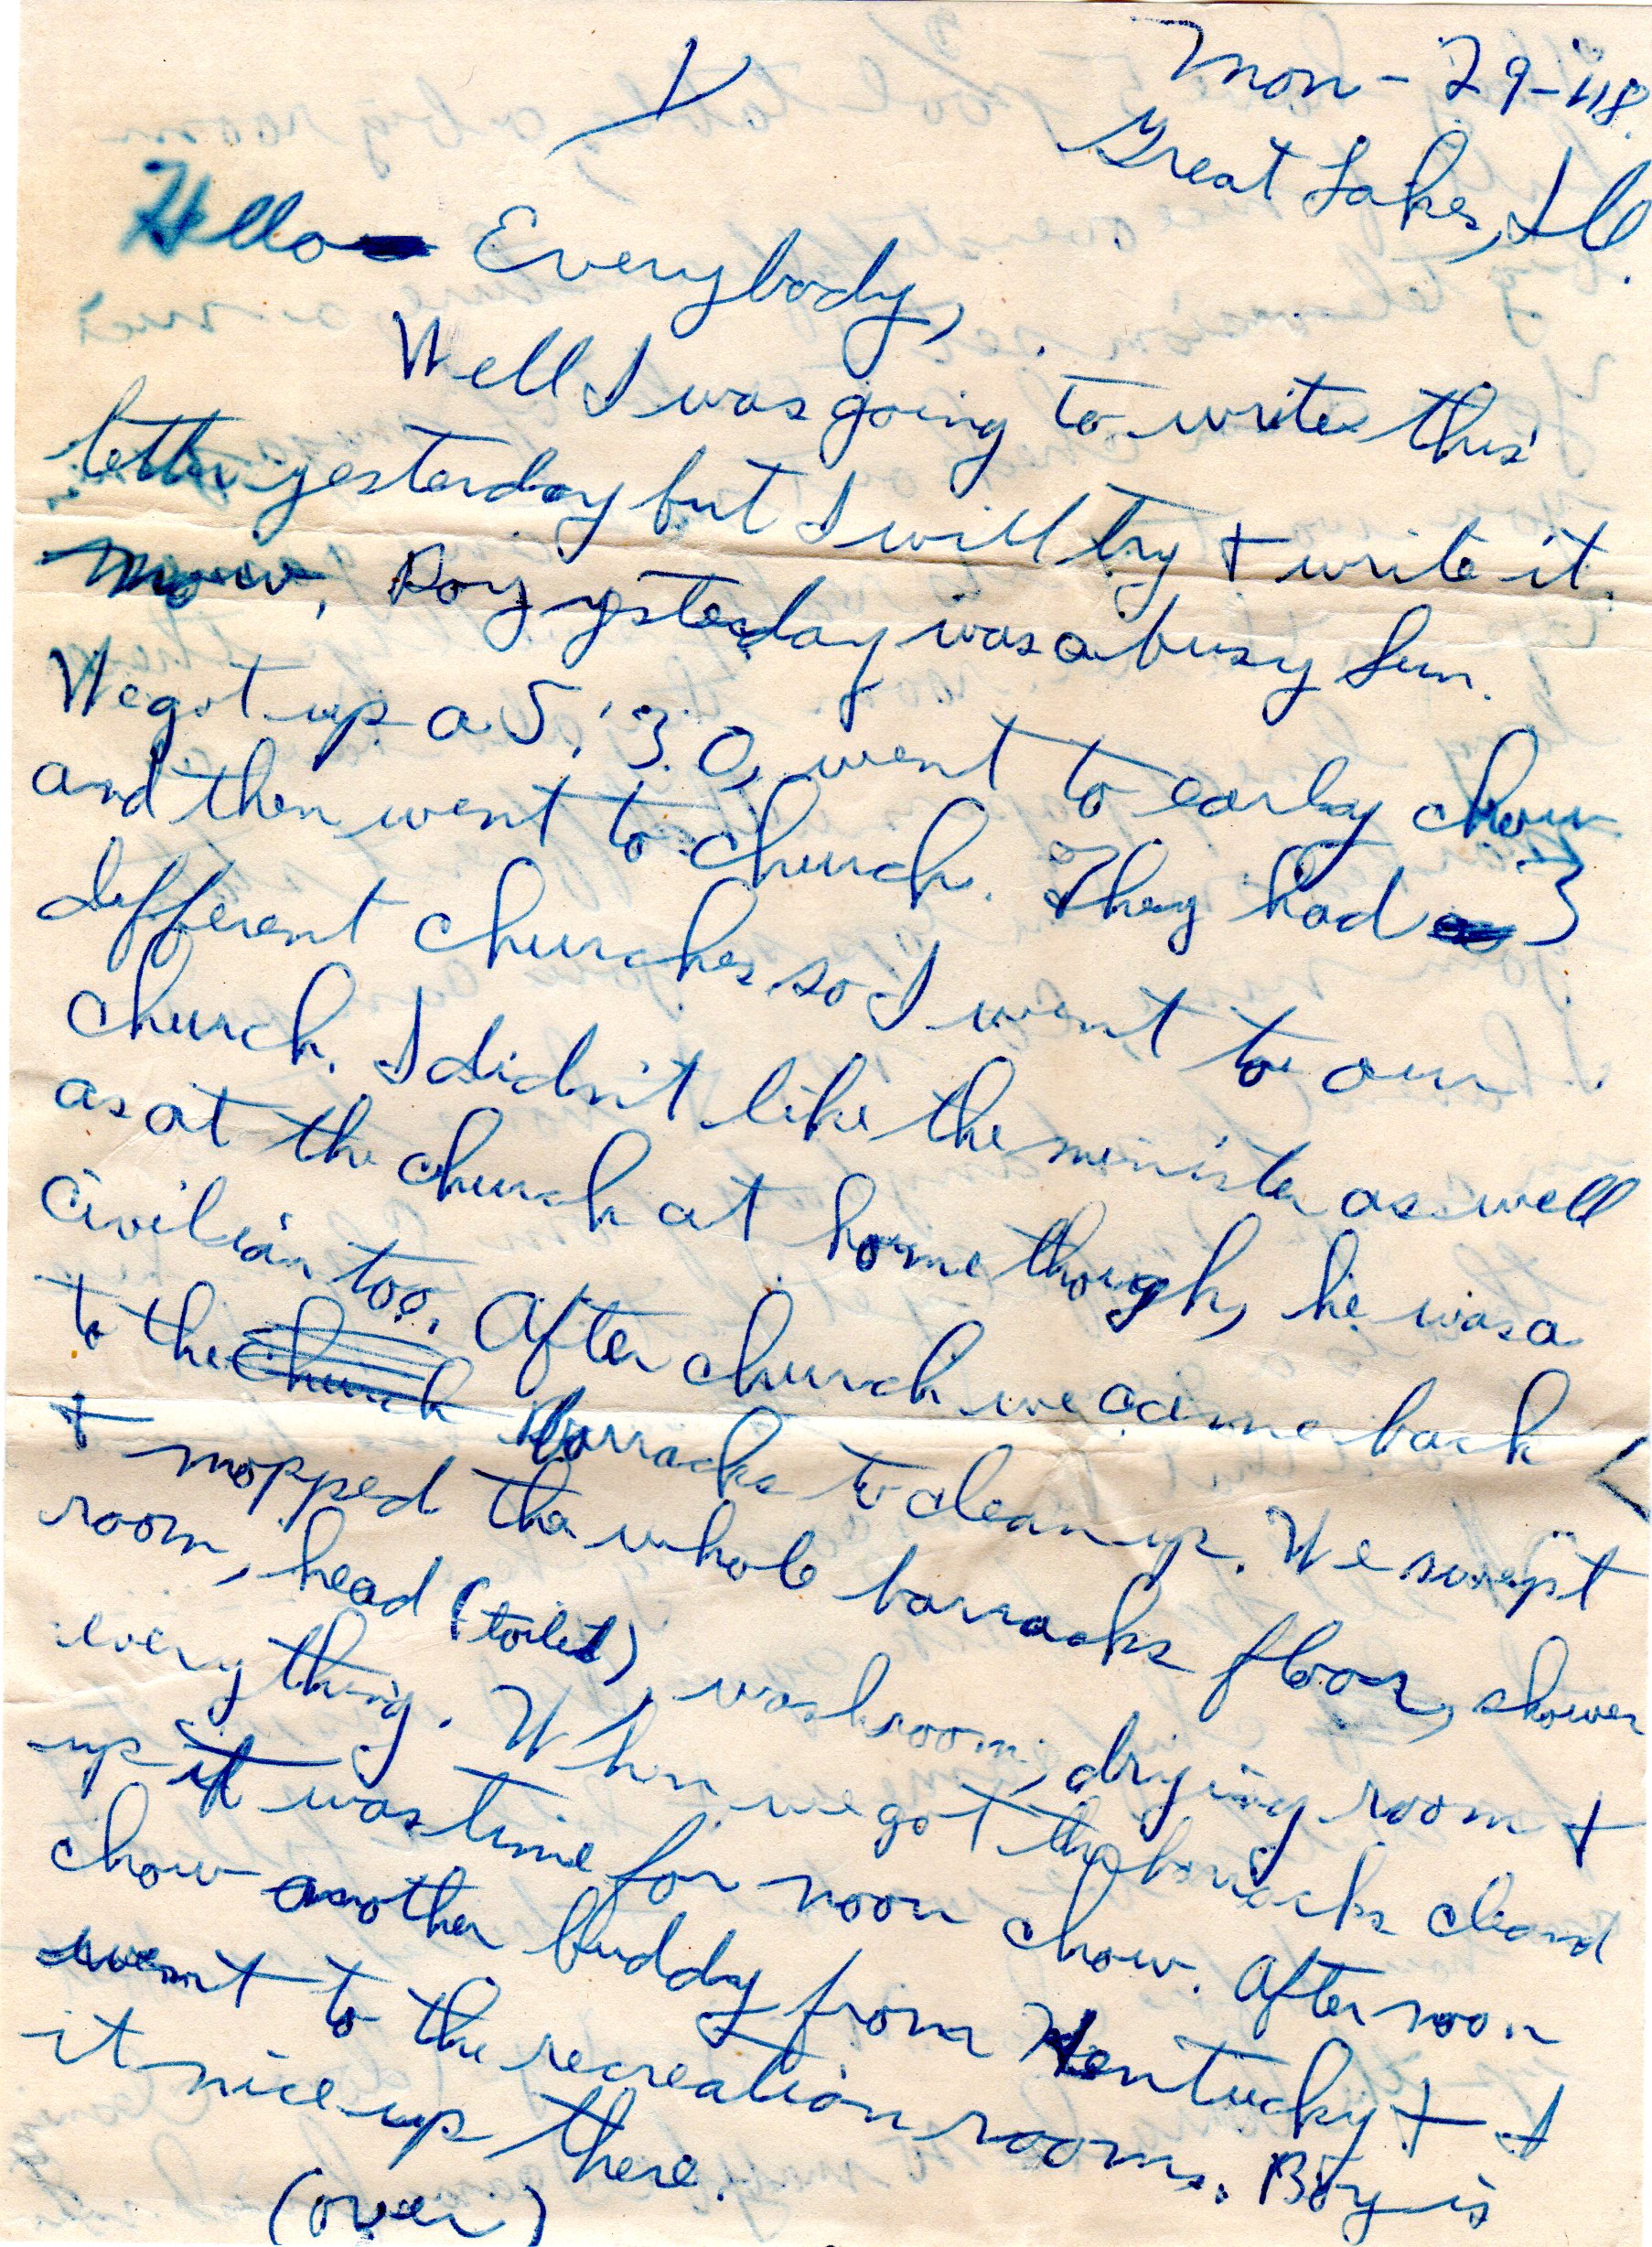 Mon - 29-'48.
Great Lakes, Ill.
Hello Everybody,
Well I was going to write this
letter yesterday but I will try + write it.
now. Boy ysterday was a busy Sun.
We got up a 5:30, went to early chow
and then went to church. They had 3
different churches so I went to our
church. I didn't like the minister as well
as at the church at home though, he was a
civilian too. After church we came back
to the church barracks to clean up. We swept
+ mopped the whole barracks floor, shower
room, head (toilet), washroom, drying room +
everything. When we got the barracks cleand
up it was time for noon chow. After noon
chow another buddy from Kentucky + I
went to the recreation rooms. Boy is
it nice up there.
(over)